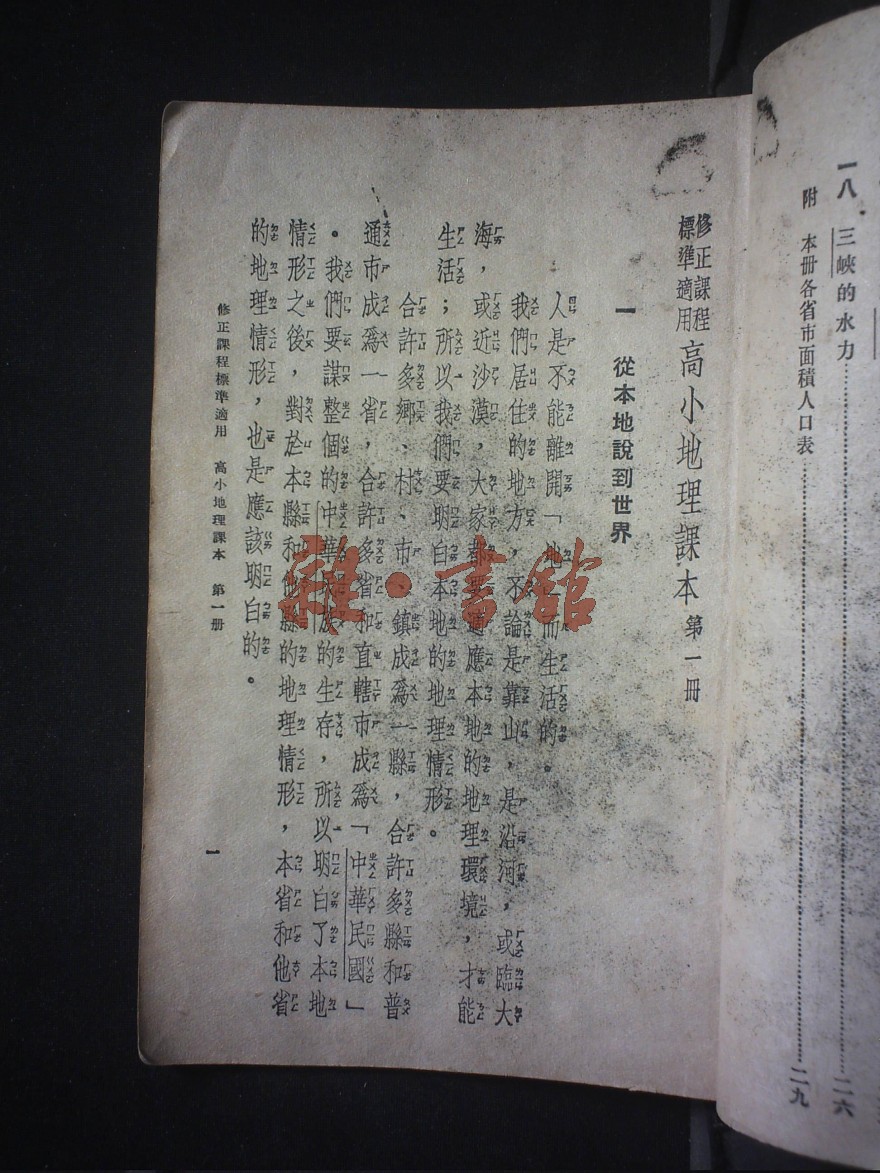 一八 三峽的水力……二六
附 本册各省市面積人口表……二九
修正課程標準適用 高小地理課本 第一冊
一 從本地說到世界
人是不能離開「地」而生活的。
我們居住的地方，不論是靠山，是沿河，或臨大
海，或近沙漠，大家都要適應本地的地理環境，才能
生活；所以我們要明白本地的地理情形。
合許多鄉、村、市、鎮成爲一縣，合許多縣和普
通市成爲一省，合許多省和直轄市成爲「中華民國」
。我們要謀整個的中華民族的生存，所以明白了本地
情形之後，對於本縣和他縣的地理情形，本省和他省
的地理情形，也是應該明白的。
修正課程標準適用 高小地理課本 第一册
一
雜·書館